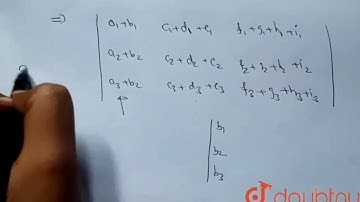 ⇒ | a₁+b₁ c₁+d₁+e₁ f₁+g₁+h₁+i₁ |
| a₂+b₂ c₂+d₂+e₂ f₂+g₂+h₂+i₂ |
| a₃+b₂ c₃+d₃+e₃ f₃+g₃+h₃+i₃ |
| b₁
| b₂
| b₃
doubtnut